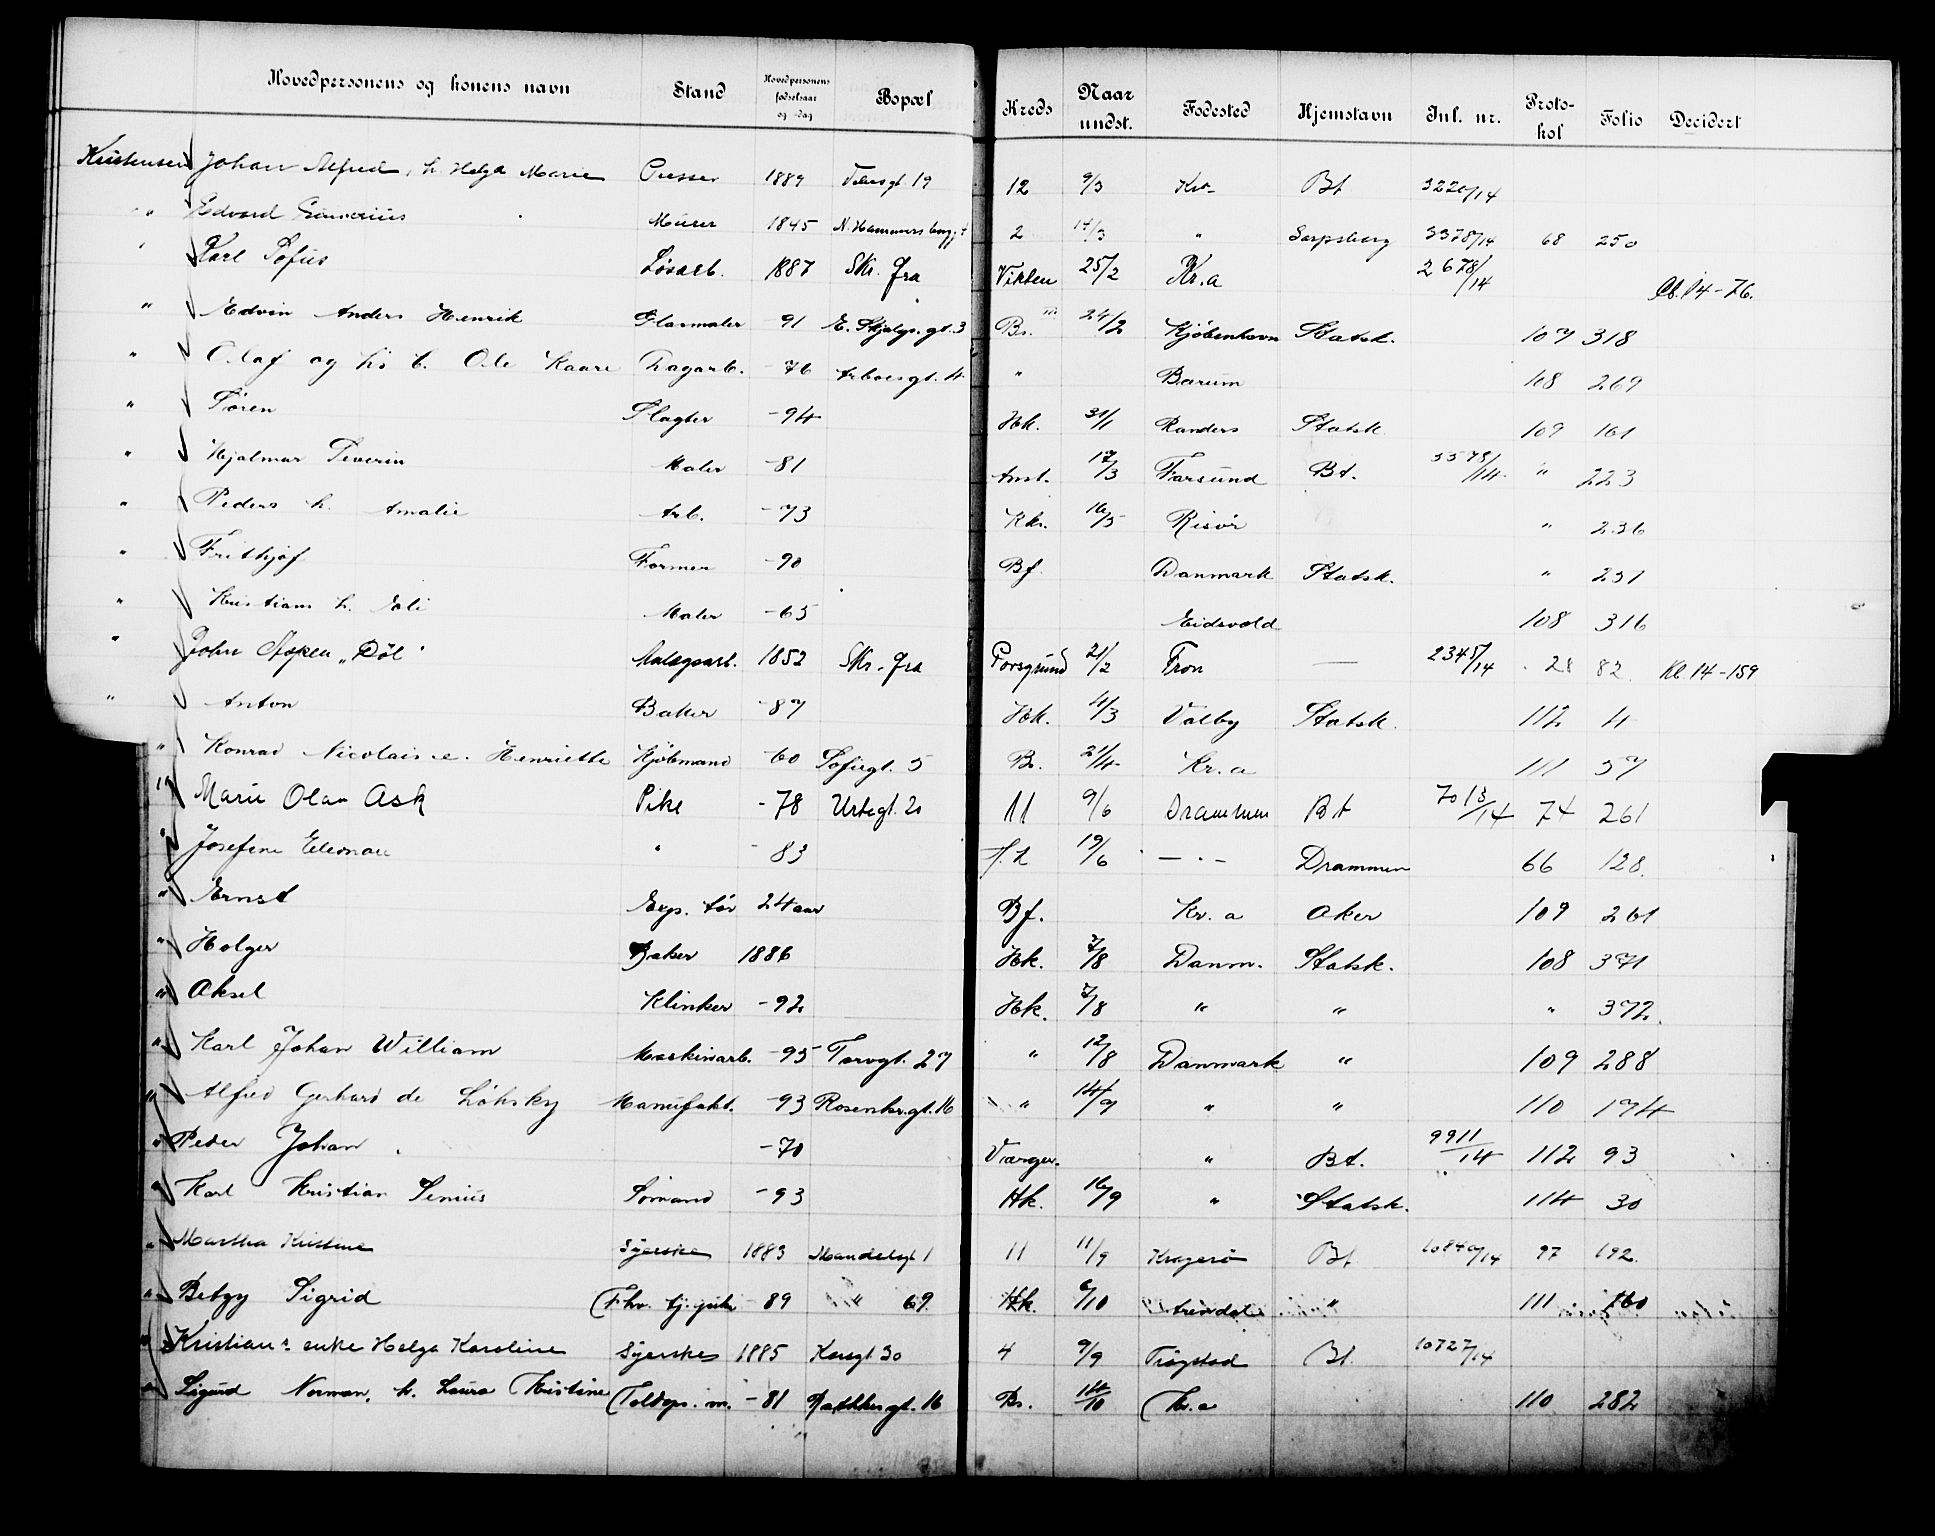 Hovedpersonens og konens navn Stand Hovedpersonens fødselsaar og -dag Bopæl Kreds Naar undst. Fødested Hjemstavn Inl. nr. Proto-kol Folio Decidert
Kristensen Johan Alfred, h. Helga Marie Presser 1889 gt 19 12 9/3 Kra Bt 3220/14
" Edvard Murer 1845 N. Hammersborggt 2 14/3 " Sarpsborg 3378/14 68 250
" Karl Sofus Løsarb. 1887 Skr. fra Vikten 25/2 Kr.a 2678/14 14-76.
" Edvin Anders Henrik Glasmaler -91 E. Skjalgs. gt. 3 Br. 24/2 Kjøbenhavn Statsk. 107 318
" Olaf og hs b. Ole Kaare Dagarb. -76 Arboesgt. 4 " Bærum 108 269
" Søren Slagter -94 Hk. 31/1 Randers Statsk. 109 161
" Hjalmar Severin Maler -81 Anst. 17/3 Farsund Bt. 3578/14 " 223
" Peders h. Amalie Arb. -73 Kkr. 16/5 Risör " 236
" Frithjof Former -90 Bf. Danmark Statsk. " 231
" Kristians h. Eli Maler -65 Eidsvold 108 316
" John Aspen "Döl" Anlægsarb. 1852 Skr. fra Porsgrund 21/2 Fron — 2345/14 28 82. Kl. 14-159
" Anton Baker -87 Hk. 4/3 Valby Statsk. 112 4
" Konrad Nicolai s e. Henriette Kjöbmand -60 Sofiegt. 5 Br. 21/4 Kr. a 111 57
" Marie Olava Ask Pike -78 Urtegt 20 11 9/6 Drammen Bt 7013/14 74 261
" Josefine Eleonau " -83 f. L 19/6 — " — Drammen 66 128.
" Ernst Exp. tør 24 aar Bf. Kr. a Aker 109 261
" Holger Baker 1886 Hk. 7/8 Danm. Statsk. 108 371
" Aksel Klinker -92 Hk. 7/8 " " " 372.
" Karl Johan William Maskinarb. -95 Torvgt. 27 " 12/8 Danmark " 109 288
" Alfred Gerhard de Löhsky Manufakt. -93 Rosenkr.gt. 16 " 14/9 " " 110 174
" Peder Johan. -70 Værger. " Bt. 9911/14 112 93
" Karl Kristian Senius Sømand -93 Hk. 16/9 " Statsk. 114 30
" Martha Kristine Syerske 1883 Mandalsgt 1 11 11/9 Kragerö Bt 10840/14 97 192.
" Betzy Sigrid Fhv. tj. pike -89 " 69. Hk. 6/10 Arendal " 111 160
" Kristians enke Helga Karoline Syerske 1885 Korsgt 30 4 9/9 Trøgstad Bt. 10727/14
" Sigurd Norman, h. Laura Kristine Toldops. m. -81 gt. 16 Br. 14/10 Kr. a 110 282